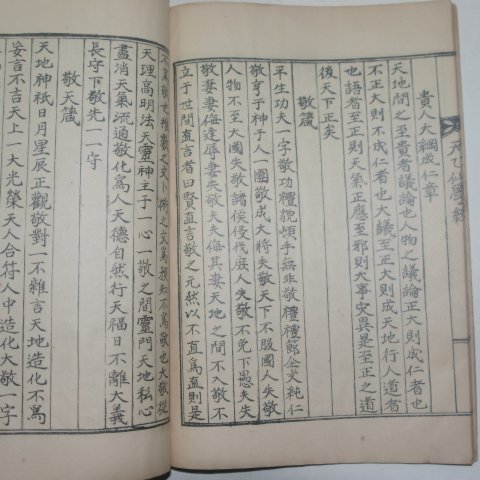 貴人大綱成仁章
天地間之至貴者議論也人物之議論正大則成仁者也
不正大則不成仁者也大議至正大則成天地行人道者
也語者至正則天氣正應至邪則大事灾異是至正之道
後天下正矣
敬箴
平生功夫一字敬功禮貌頓手無非敬禮禮節全文純仁
敬享于神子人一團敬成大將失敬天下不服國人失敬
人物不至大國失敬諸侯侵伐庭人失敬不免下愚夫失
敬妻妻侮違辱妻失敬夫夫侮其妻天地之間不入敬不
立于世間直言者曰賢直言敬之元然以不直爲直則是
不爲敬也
天理高明法天靈神主于一心一敬之間靈門天地私心
盡消天氣流通敬化爲人天德自然行天福日不離大義
長守下敬先一一守
敬天箴
天地神祇日月星辰正觀敬對一不雜言天地造化不爲
妄言不吉天上一大光榮天人合符人中造化大敬一字